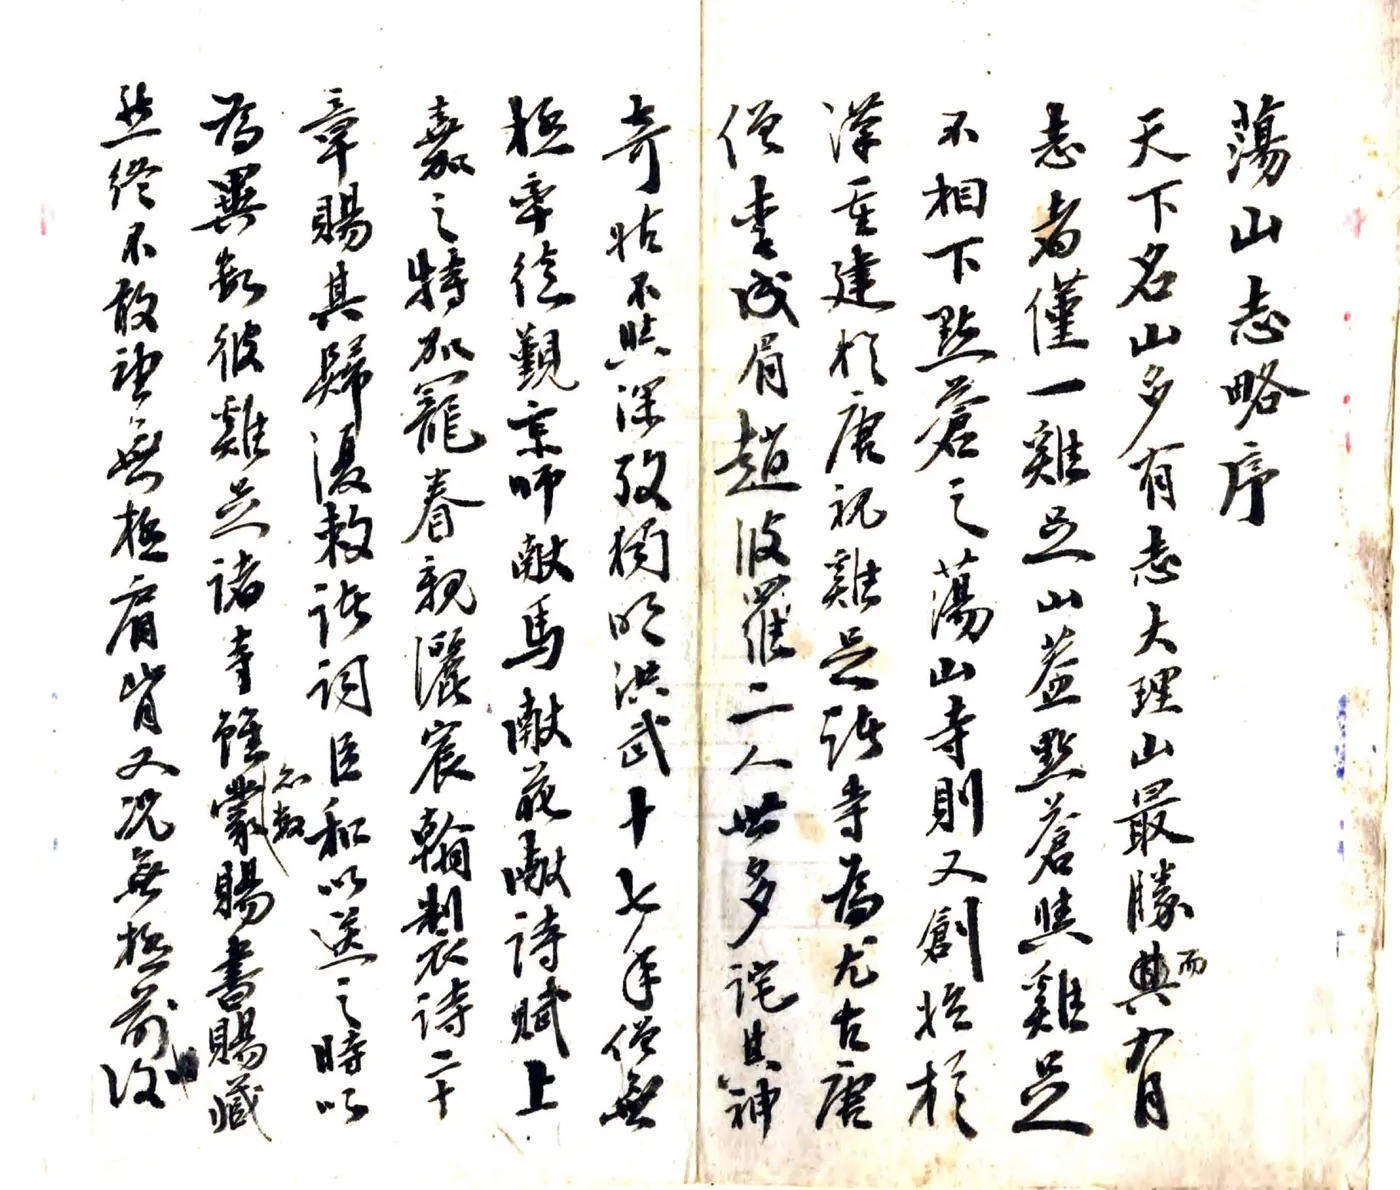 蕩山志略序
天下名山多有志大理山最勝而其有
志者僅一雞足山蓋點蒼與雞足
不相下點蒼之蕩山寺則又創始於
漢重建於唐視雞足諸寺為尤古唐
僧李成眉趙波羅二人世多詫其神
奇怙不與深致獨明洪武十七年僧無
極率徒覲京師獻馬獻花獻詩賦上
嘉之特加寵眷親灑宸翰製衣詩二十
章賜其歸復敕諸詞臣和以送之時以
為異數彼雞足諸寺雖蒙賜書賜藏
然終不敢望無極肩背又況無極前後